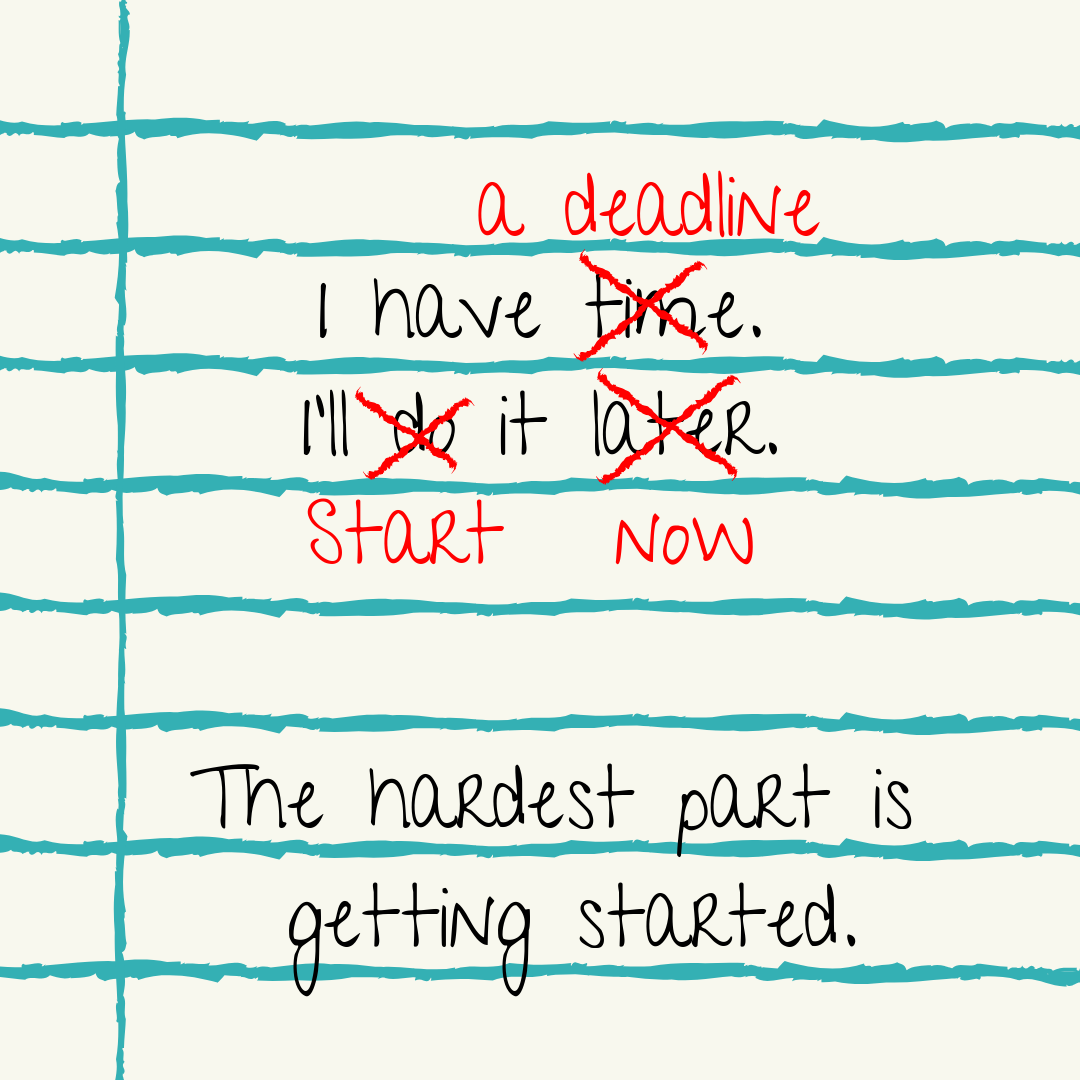 a deadline
I have time.
I'll do it later.
Start now
The hardest part is
getting started.